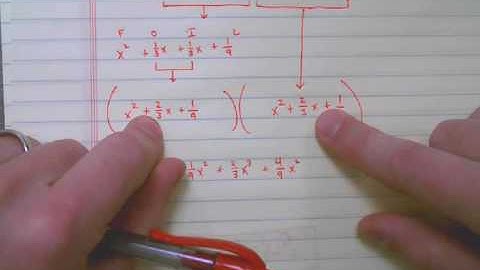 F O I L
x² + 1/3x + 1/3x + 1/9
(x² + 2/3x + 1/9)(x² + 2/3x + 1
1/9x² + 2/3x³ + 4/9x²